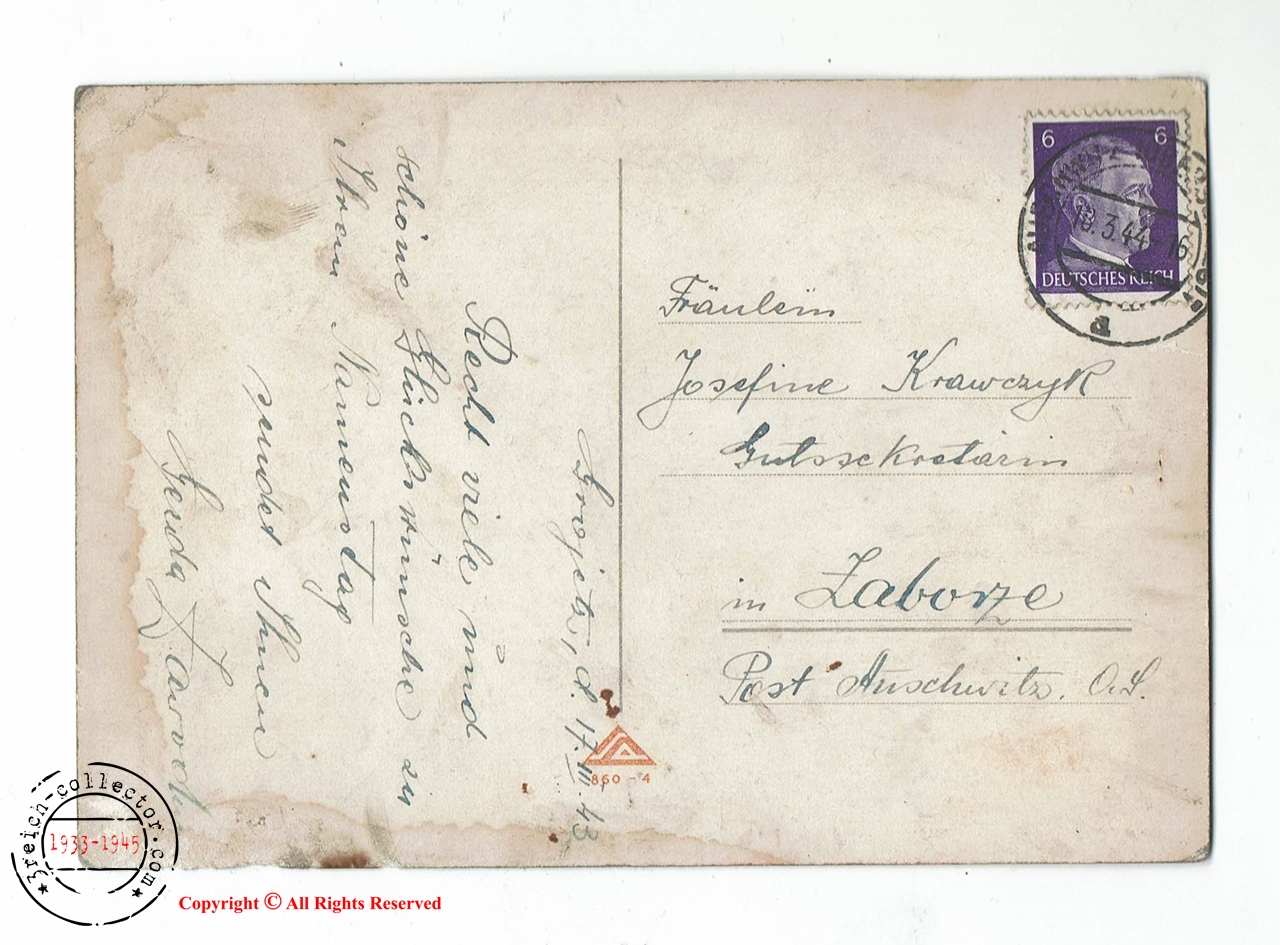 6 6
DEUTSCHES REICH
18.3.44 16
a
Fräulein
Josefine Krawczyk
Gutssekretärin
in Zaborze
Post Auschwitz. O.S.
Grojetz, d. 17.III.43
Recht viele und
schöne Glückwünsche zu
Ihrem Namenstag
sendet Ihnen
Gerda
860-4
3reich-collector.com
1933-1945
Copyright © All Rights Reserved